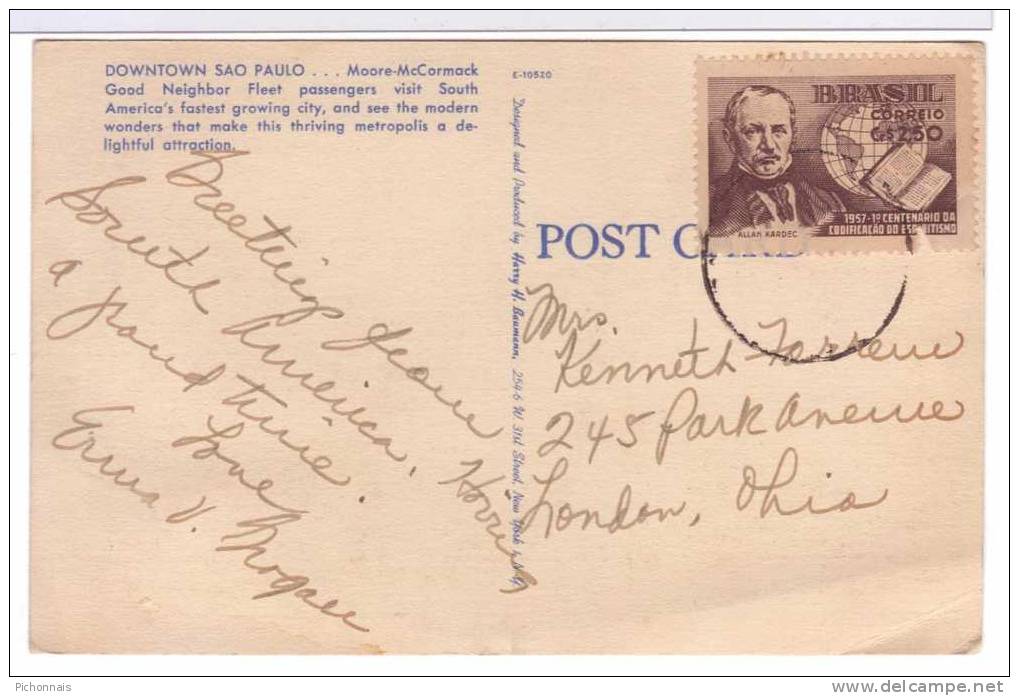 DOWNTOWN SAO PAULO . . . Moore-McCormack
Good Neighbor Fleet passengers visit South
America's fastest growing city, and see the modern
wonders that make this thriving metropolis a de-
lightful attraction.
Greetings from
South America.
Having
a grand time.
Love
Erma V.
E-10520
Designed and Produced by Harry H. Baumann, 254-6 W. 31st Street, New York 1, N.Y.
POST CARD
BRASIL
CORREIO
Cr$ 2,50
1957-1º CENTENÁRIO DA
CODIFICAÇÃO DO ESPIRITISMO
ALLAN KARDEC
Mrs.
Kenneth
245 Park Avenue
London, Ohio
Pichonnais
www.delcampe.net